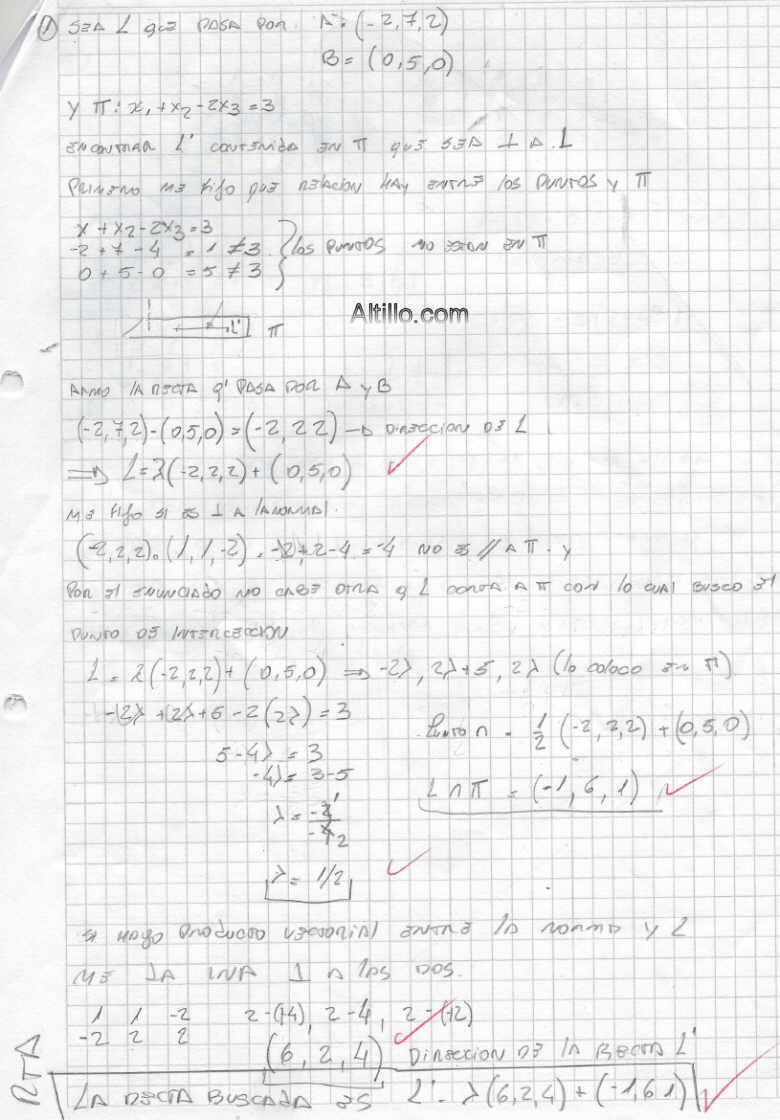 ① SEA L QUE PASA POR A = (-2,7,2)
B = (0,5,0)
Y π: x₁+x₂-2x₃=3
ENCONTRAR L' CONTENIDA EN π QUE SEA ⊥ A L
PRIMERO ME FIJO QUE RELACION HAY ENTRE LOS PUNTOS Y π
x+x₂-2x₃=3
-2+7-4 = 1 ≠3 } LOS PUNTOS NO ESTAN EN π
0+5-0 = 5 ≠ 3
Altillo.com
L' π
ARMO LA RECTA q' PASA POR A y B
(-2,7,2)-(0,5,0)=(-2,22) → DIRECCION DE L
⟹ L=λ(-2,2,2)+(0,5,0)
ME FIJO SI ES ⊥ A LA NORMAL.
(-2,2,2)·(1,1,-2) = -2+2-4=-4 NO ES // A π. Y
POR EL ENUNCIADO NO CABE OTRA q L CORTA A π CON LO CUAL BUSCO EL
PUNTO DE INTERCECCION
L = λ(-2,2,2)+(0,5,0) ⟹ -2λ, 2λ+5, 2λ (lo coloco en π)
-2λ+2λ+5-2(2λ)=3
5-4λ = 3
-4λ= 3-5
Punto ∩ = 1/2 (-2,2,2)+(0,5,0)
L∩π = (-1,6,1)
λ = -2 1 / -4 2
λ= 1/2
SI HAGO PRODUCTO VECTORIAL ENTRE LA NORMA Y L
ME DA UNA ⊥ A LAS DOS.
1 1 -2 2-(-4), 2-4, 2-(-2)
-2 2 2
(6,2,4) DIRECCION DE LA RECTA L'
RTA
LA RECTA BUSCADA ES L'= λ(6,2,4)+(-1,6 1)